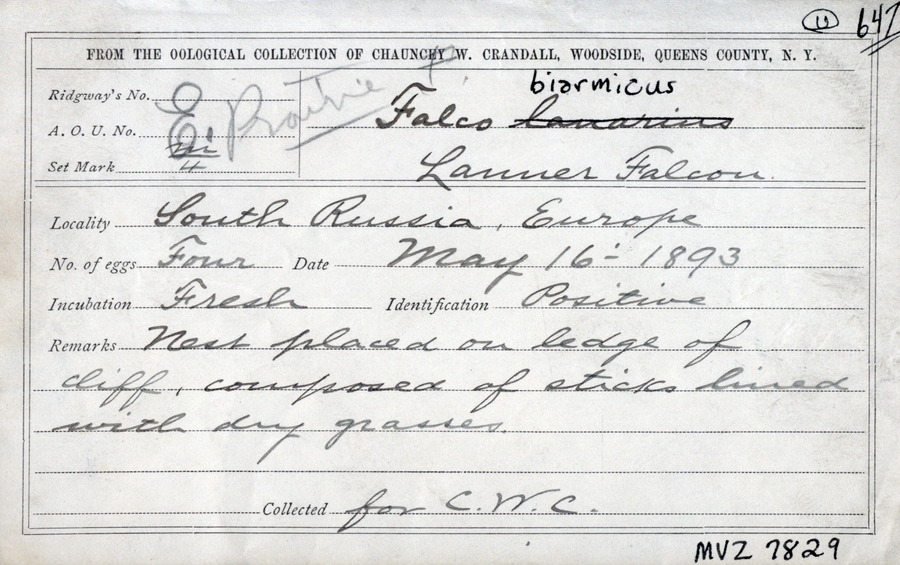 11 647
FROM THE OOLOGICAL COLLECTION OF CHAUNCEY W. CRANDALL, WOODSIDE, QUEENS COUNTY, N. Y.
biarmicus
Ridgway's No. Prairie F.
A. O. U. No. E Falco lanarius
Set Mark 4 Lanner Falcon.
Locality South Russia, Europe
No. of eggs Four Date May 16 - 1893
Incubation Fresh Identification Positive
Remarks Nest placed on ledge of
cliff, composed of sticks lined
with dry grasses.
Collected for C.W.C.
MVZ 7829